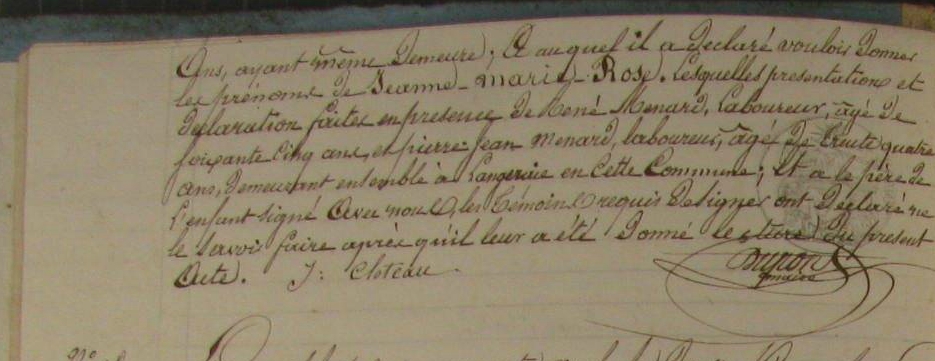 Ans, ayant même Demeure; & auquel il a declaré vouloir Donner
les prénoms de Jeanne-Marie-Rose. Lesquelles presentation et
declaration faites en presence de René Menard, Laboureur, âgé de
soixante Cinq ans, et pierre-Jean Menard, laboureur, âgé de trente quatre
ans, Demeurant ensemble à en Cette Commune; Et a le père de
l'enfant signé Avec nous &, les témoins requis de signer ont Declaré ne
le savoir faire après qu'il leur a été Donné lecture du present
Acte. J: Cloteau
Dupont
maire